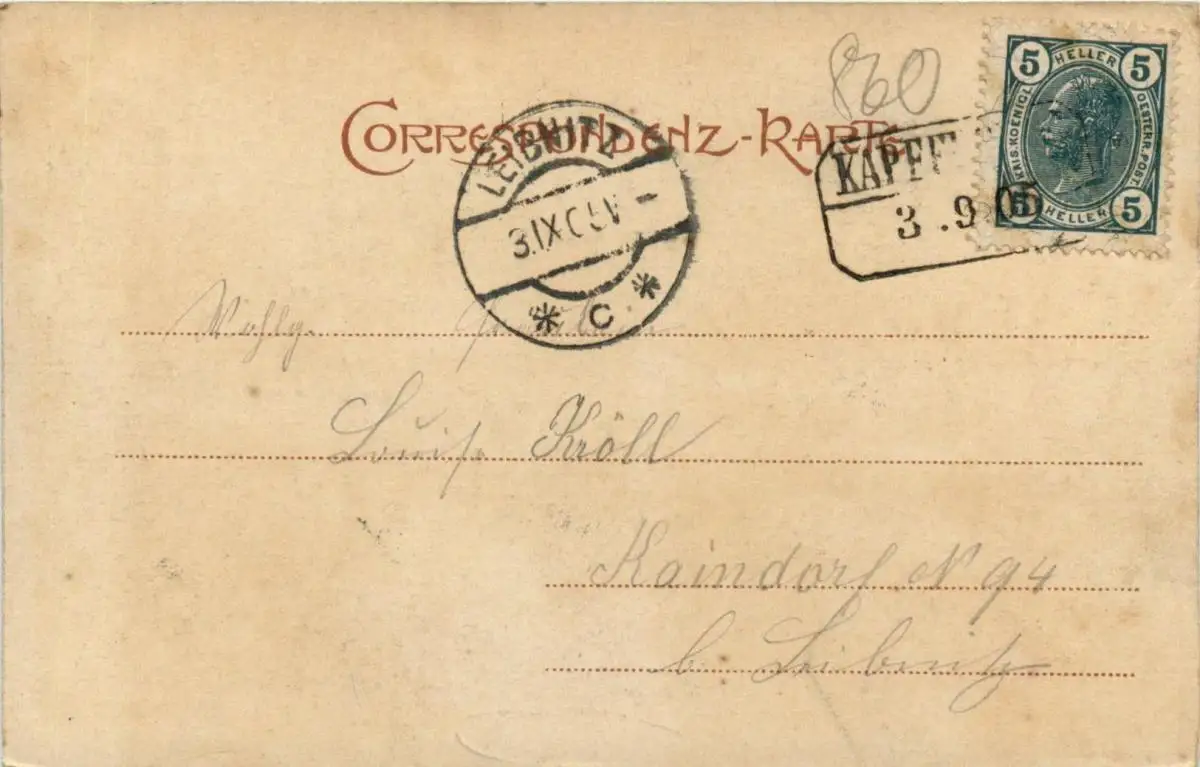 860
CORRESPONDENZ-KARTE
5 HELLER 5
KAIS. KOENIGL. OESTERR. POST.
5 HELLER 5
LEIBNITZ
3.IX.05
* C *
KAPF
3.9.05
Wohlg.
Louise Kröll
Kaindorf N 94
b. Leibnitz